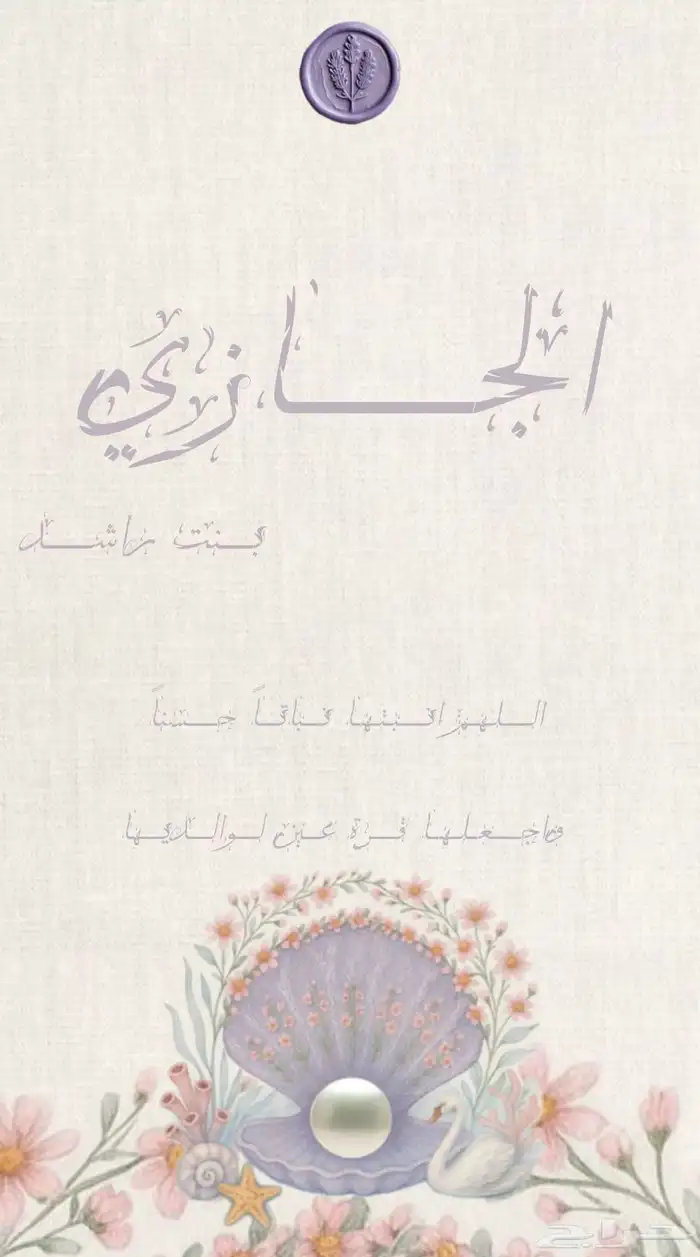 الجازي
بنت راشد
اللهم انبتها نباتاً حسناً
واجعلها قرة عين لوالديها
حراج